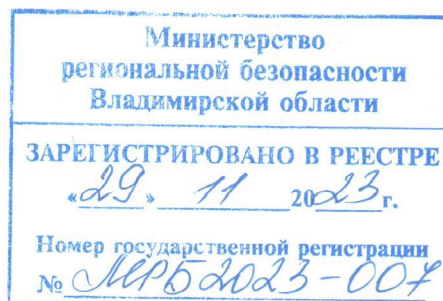 Министерство
региональной безопасности
Владимирской области
ЗАРЕГИСТРИРОВАНО В РЕЕСТРЕ
«29» 11 2023 г.
Номер государственной регистрации
№ МРБ2023-007